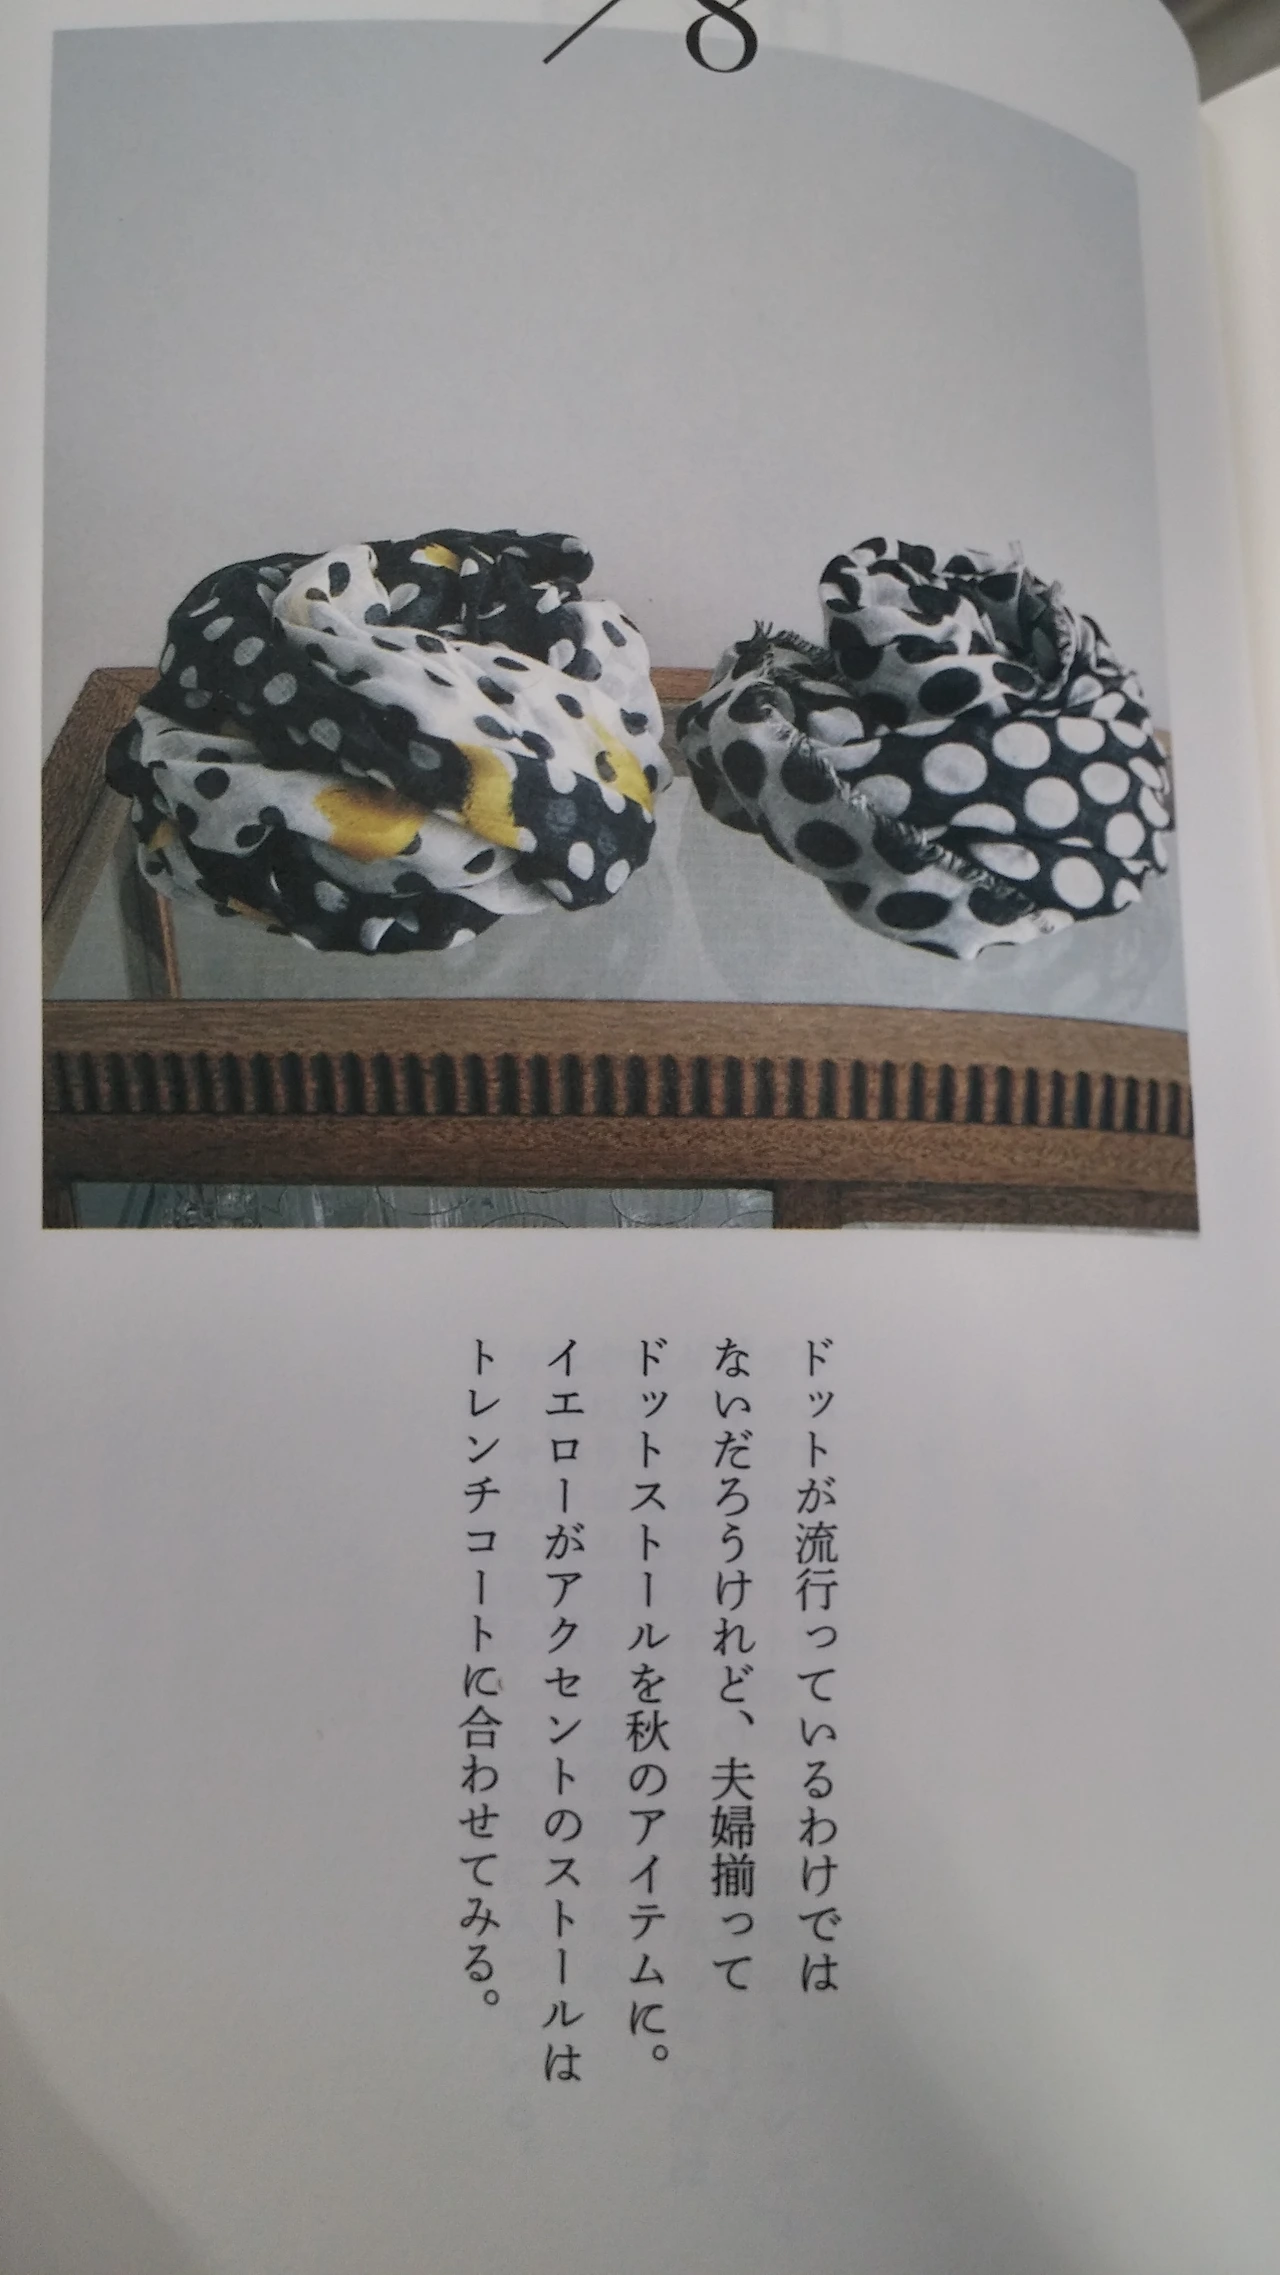 /8
ドットが流行っているわけでは
ないだろうけれど、夫婦揃って
ドットストールを秋のアイテムに。
イエローがアクセントのストールは
トレンチコートに合わせてみる。